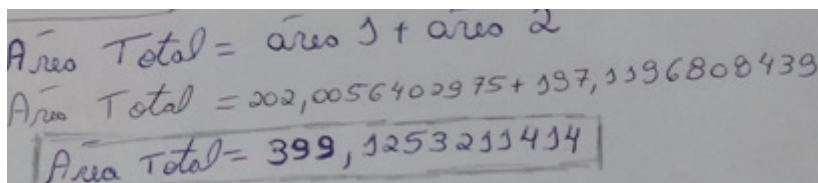 Área Total = área 1 + área 2
Área Total = 202,0056402975 + 197,1196808439
Área Total = 399,1253211414